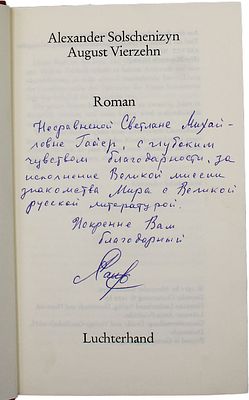 Alexander Solschenizyn
August Vierzehn
Roman
Несравненой Светлане Михай-
ловне Гайер, с глубоким
чувством благодарности, за
исполнение Великой миссии
знакомства Мира с Великой
русской литературой.
Искренне Вам
благодарный
Luchterhand